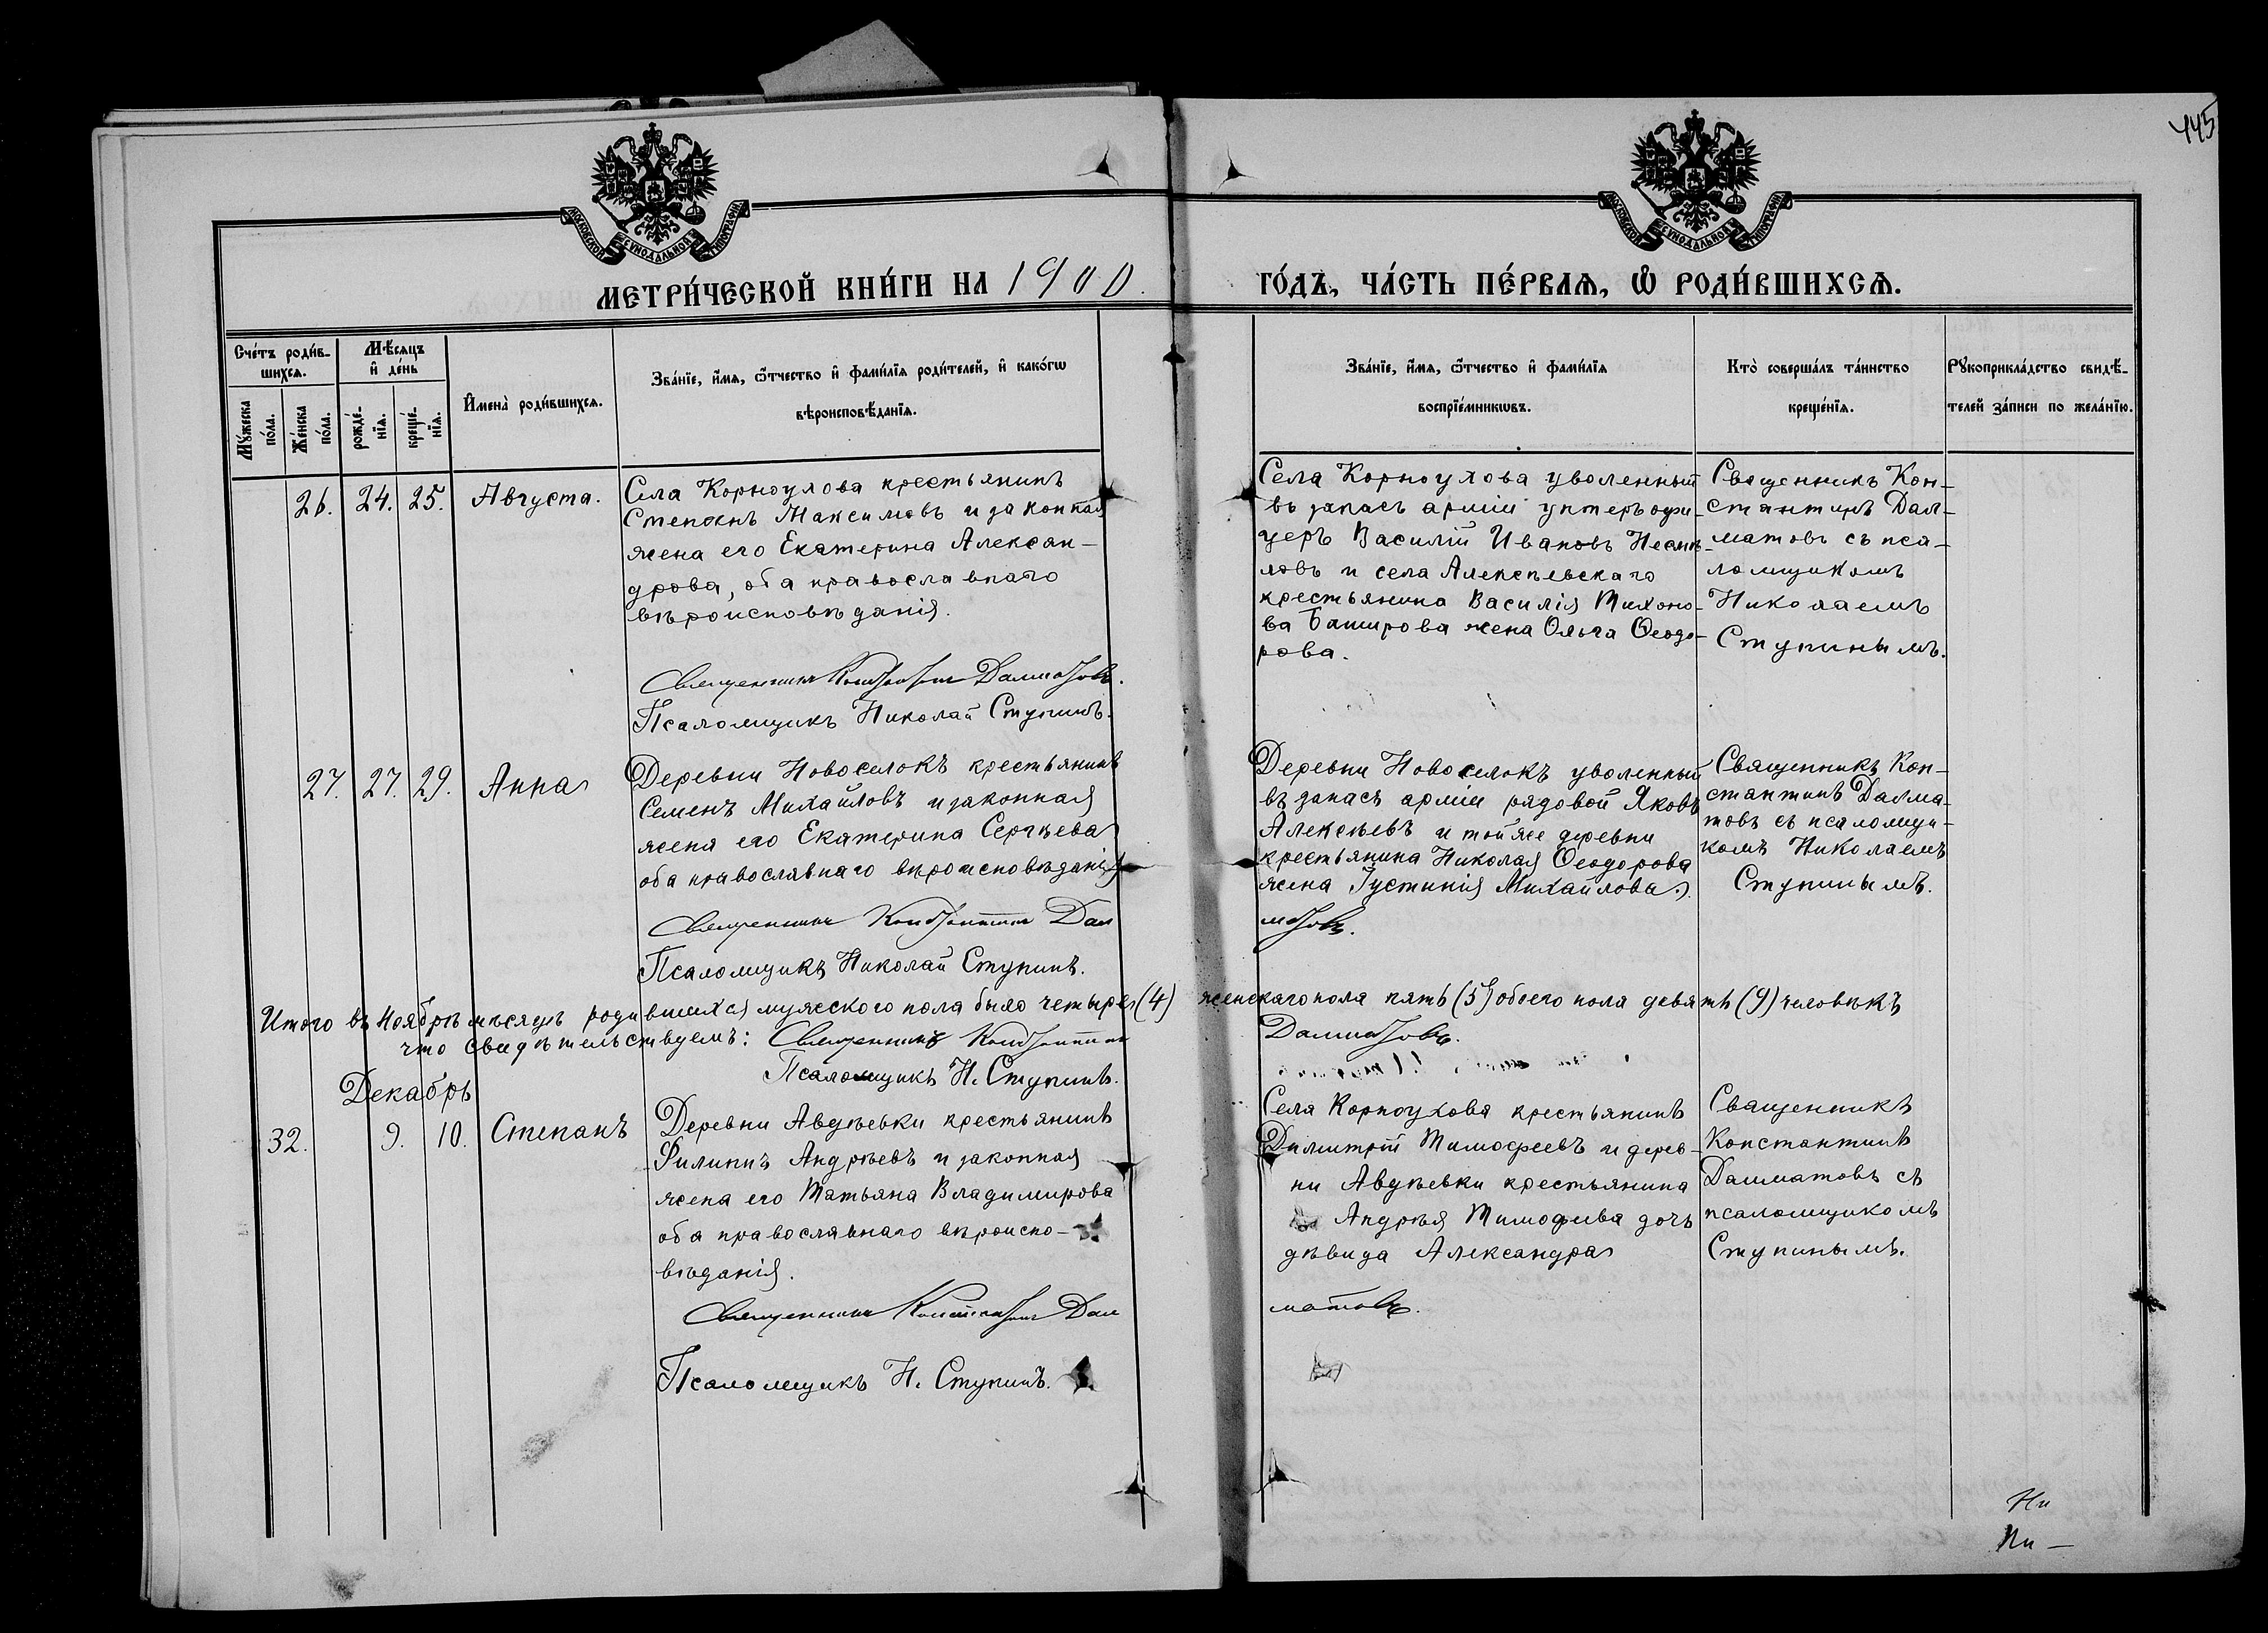 445
МОСКОВСКОЙ СѴНОДАЛЬНОЙ ТИПОГРАФІИ
МОСКОВСКОЙ СѴНОДАЛЬНОЙ ТИПОГРАФІИ
МЕТРИ́ЧЕСКОЙ КНИ́ГИ НА 1900.
ГО́ДЪ, ЧА́СТЬ ПЕ́РВАѦ, Ѽ РОДИ́ВШИХСѦ.
Сче́тъ роди́в-
шихсѧ.
Мꙋ́жеска
по́ла.
Же́нска
по́ла.
Мѣ́сѧцъ
и҆ де́нь
рожде́-
нїѧ.
креще́-
нїѧ.
И҆мена̀ роди́вшихсѧ.
Зва́нїе, и҆́мѧ, ѻ҆́тчество и҆ фами́лїѧ роди́телей, и҆ како́гѡ
вѣроисповѣ́данїѧ.
Зва́нїе, и҆́мѧ, ѻ҆́тчество и҆ фами́лїѧ
воспрїе́мникѡвъ.
Кто̀ соверша́лъ та́инство
креще́нїѧ.
Рꙋкоприкла́дство свидѣ́-
телей за́писи по жела́нїю.
26. 24. 25. Августа.
Села Корноухова крестьянинъ
Степанъ Максимовъ и законная
жена его Екатерина Алексан-
дрова, оба православнаго
вѣроисповѣданія.
Священникъ Константинъ Далматовъ.
Псаломщикъ Николай Ступинъ.
Села Корноухова уволенный
въ запасъ арміи унтеръ офи-
церъ Василій Ивановъ
и села Алексѣевскаго
крестьянина Василія Тихоно-
ва Баширова жена Ольга Ѳеодо-
рова.
Священникъ Кон-
стантинъ Дал-
матовъ съ пса-
ломщикомъ
Николаемъ
Ступинымъ.
27. 27. 29. Анна
Деревни Новоселокъ крестьянинъ
Семенъ Михайловъ и законная
жена его Екатерина Сергѣева
оба православнаго вѣроисповѣданія
Священникъ Константинъ Дал
Псаломщикъ Николай Ступинъ.
Деревни Новоселокъ уволенный
въ запасъ арміи рядовой Яковъ
Алексѣевъ и той же деревни
крестьянина Николая Ѳеодорова
жена Іустинія Михайлова.
матовъ.
Священникъ Кон-
стантинъ Далма-
товъ съ псаломщи-
комъ Николаемъ
Ступинымъ.
Итого въ Ноябрѣ мѣсяцѣ родившихся мужского пола было четыре (4) женскаго пола пять (5) обоего пола девять (9) человѣкъ
что свидѣтельствуемъ: Священникъ Константинъ Далматовъ.
Псаломщикъ Н. Ступинъ.
Декабрь
32. 9. 10. Степанъ
Деревни Авдѣевки крестьянинъ
Филиппъ Андрѣевъ и законная
жена его Татьяна Владимирова
оба православнаго вѣроиспо-
вѣданія.
Священникъ Константинъ Дал
Псаломщикъ Н. Ступинъ.
Села Корноухова крестьянинъ
Димитрій Тимофеевъ и дерев-
ни Авдѣевки крестьянина
Андрѣя Тимофеева дочь
дѣвица Александра
матовъ.
Священникъ
Константинъ
Далматовъ съ
псаломщикомъ
Ступинымъ.